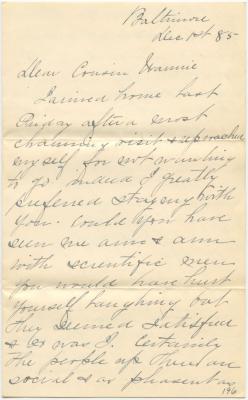 Baltimore
Dec 1st 85
Dear Cousin Hannie
I arrived home last
Friday after a most
charming visit & upreached
myself for not wanting
to go indeed I greatly
preferred staying with
you. Could you have
seen me arm & arm
with scientific men
you would have hurt
yourself laughing but
they seemed satisfied
& so was I. Certainly
the people up there are
social & as pleasant as
196